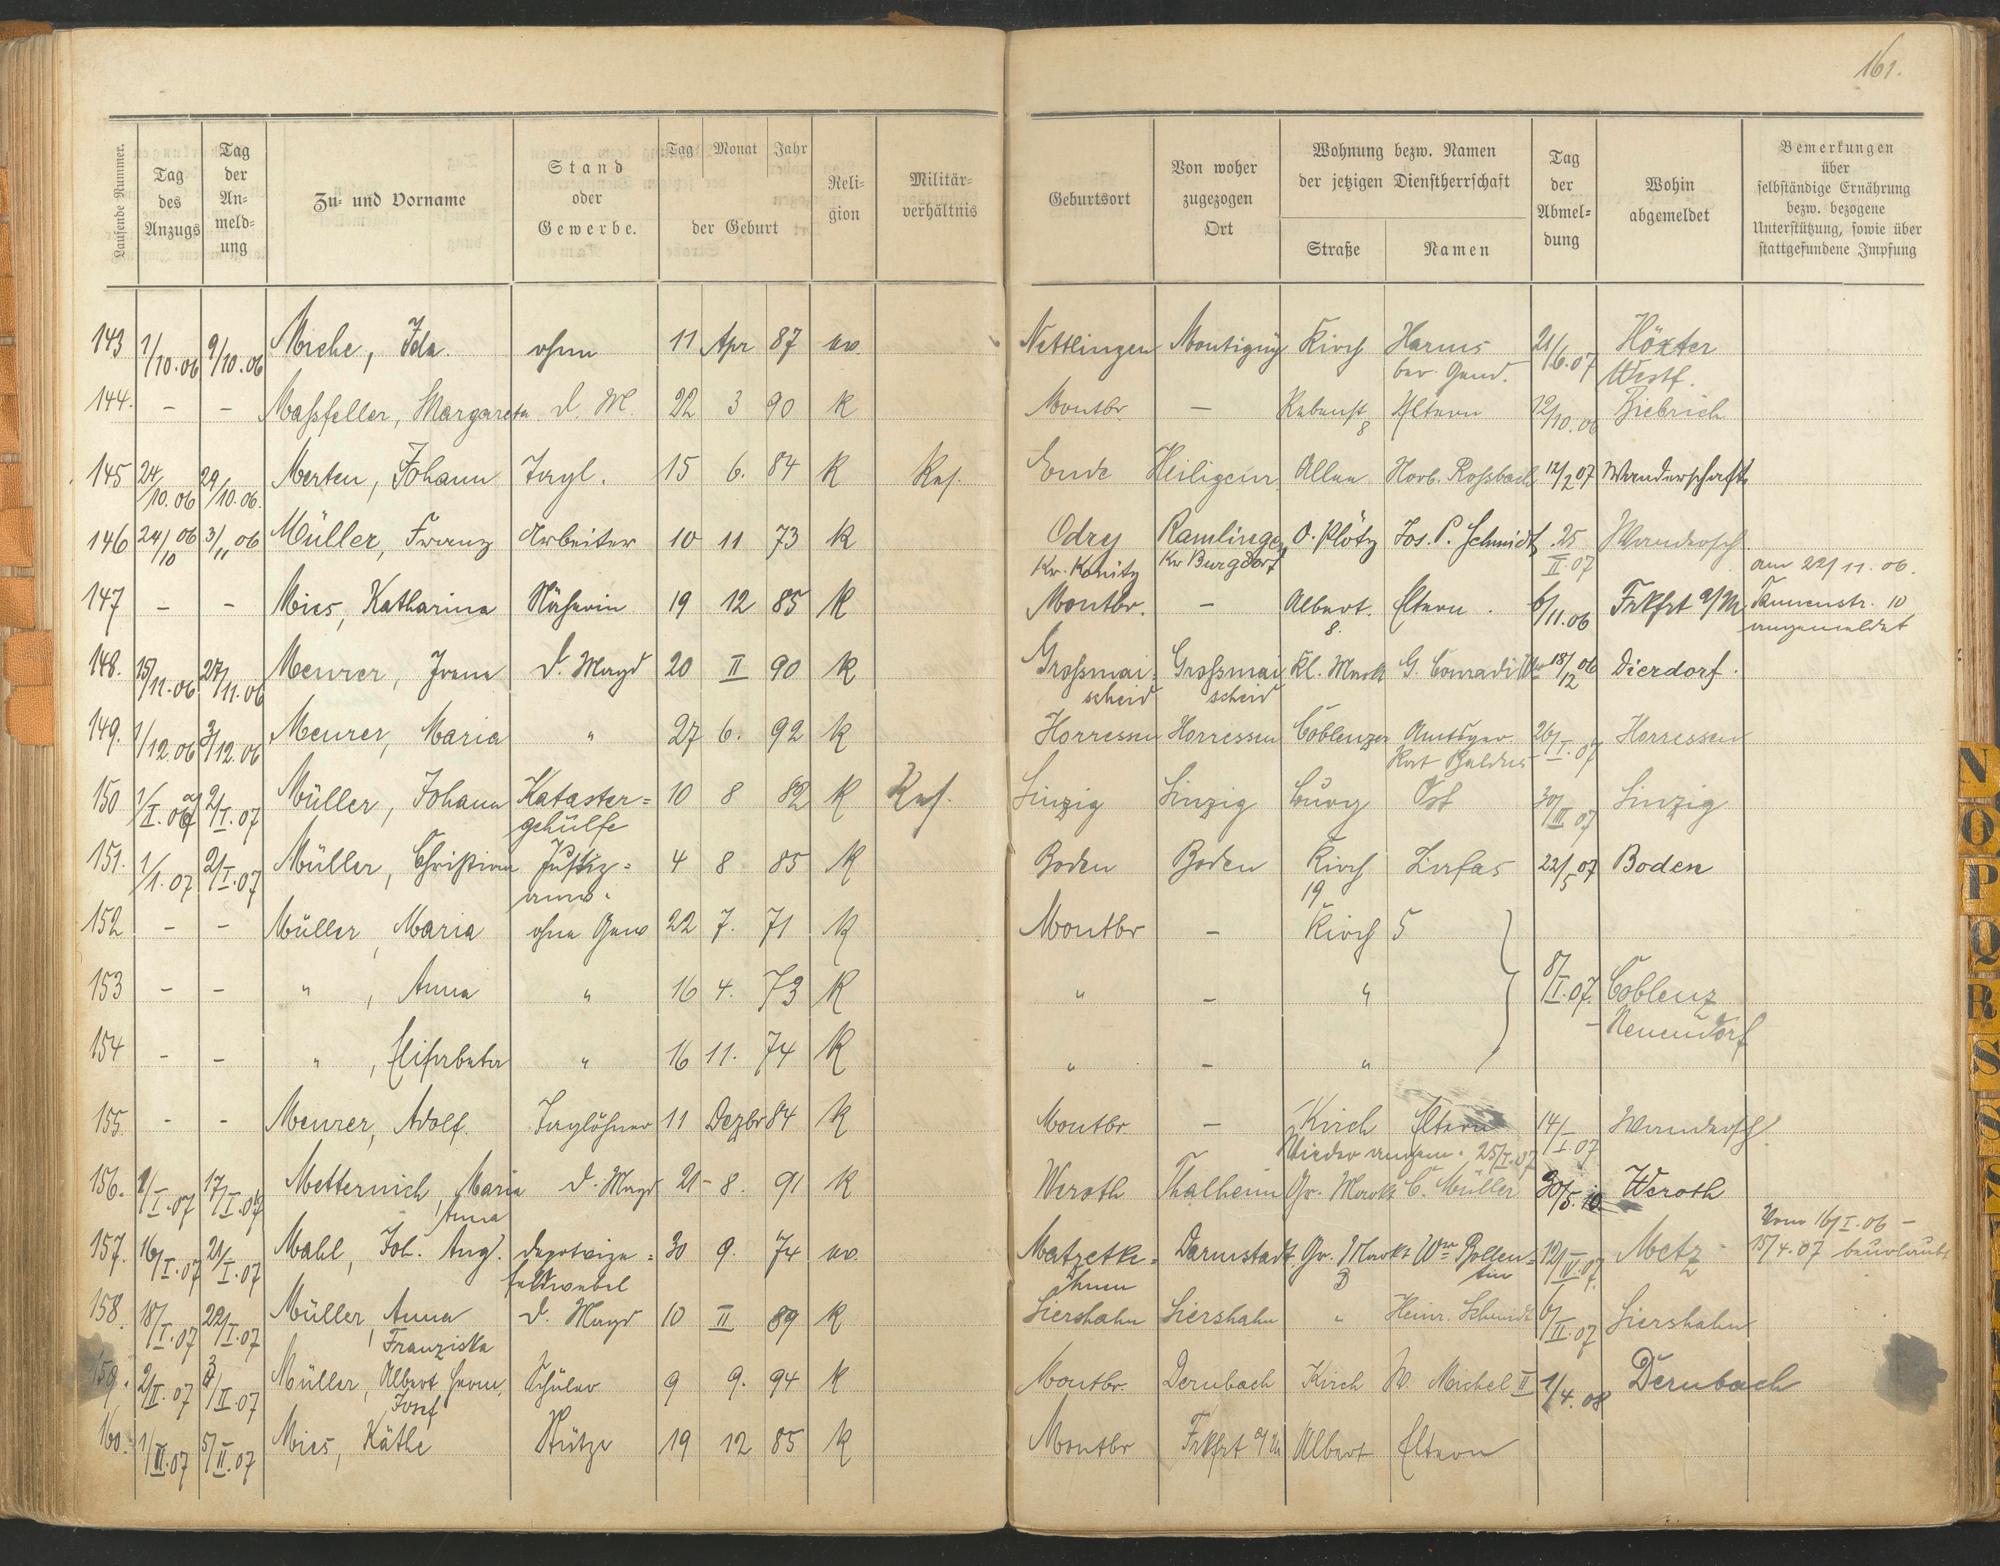 161.
Laufende Nummer.
Tag des Anzugs
Tag der An-meld-ung
Zu- und Vorname
Stand oder Gewerbe.
Tag Monat Jahr
der Geburt
Reli-gion
Militär-verhältnis
Geburtsort
Von woher zugezogen Ort
Wohnung bezw. Namen der jetzigen Dienstherrschaft
Straße Namen
Tag der Abmel-dung
Wohin abgemeldet
Bemerkungen über selbständige Ernährung bezw. bezogene Unterstützung, sowie über stattgefundene Impfung
143 1/10.06 9/10.06 Miche, Ida. ohne 11 Apr 87 ev. Nettlingen Montigny Kirch Harms 21/6.07 Höxter
ber. Gend. Westf.
144. – – Maßfeller, Margareta d. M. 22 3 90 K Montbr. – Rebenst Eltern 12/10.06 Biebrich
8
145 24/10.06 29/10.06. Merten, Johann Tagl. 15 6. 84 K Res. Ende Heiligenr. Allee Herb. Roßbach 12/2 07 Wanderschaft
146 24/10 06 3/11 06 Müller, Franz Arbeiter 10 11 73 K Odry Ramlingen O. Plötz Jos. P. Schmidt 25/II.07 Wandersch.
Kr. Konitz Kr Burgdorf am 22/11.06.
147 – – Mies, Katharina Näherin 19 12 85 K Montbr. – Albert. Eltern. 6/11.06 Frkfrt a/M Tannenstr. 10
8. angemeldet
148. 15/11.06 27/11.06 Meurer, Irma d. Magd 20 II 90 K Großmai- Großmai Kl. Markt G. Conradi 18/12 06 Dierdorf.
scheid scheid
149. 1/12.06 3/12.06 Meurer, Maria " 27 6. 92 K Horressen Horressen Coblenzer Amtsger. 26/I.07 Horressen
150 1/I.07 2/I.07 Müller, Johann Kataster= 10 8 82 K Res. Sinzig Sinzig Burg Ost 30/III 07 Sinzig
gehülfe
151. 1/1.07 2/I.07 Müller, Christian Justiz= 4 8 85 K Boden Boden Kirch Zerfas 22/5 07 Boden
anw. 19
152 – – Müller, Maria ohne Gew 22 7. 71 K Montbr – Kirch 5
153 – – " , Anna " 16 4. 73 K " – " 8/I.07. Coblenz
– Neuendorf
154 – – " , Elisabeta " 16 11. 74 K " – "
155. – – Meurer, Adolf. Taglöhner 11 Dezbr 84 K Montbr. – Kirch Eltern 14/I.07 Wandersch.
Wieder angem. 25/I.07
156. /I.07 17/I.07 Metternich, Maria d. Magd 21 – 8. 91 K Weroth Thalheim Gr. Markt C. Müller 30/5.10. Weroth
Anna
157. 16/I.07 21/I.07 Mahl, Joh. Aug. Depotvize= 30 9. 74 ev. Matzetke= Darmstadt Gr. Markt Wwe Bollen= 12/IV.07. Metz Vom 16/I.06 –
feldwebel hmen 3 tin 15/4.07 beurlaubt
158. 18/I.07 22/I.07 Müller, Anna d. Magd 10 II 89 K Siershahn Siershahn " Heinr. Schmidt 6/II.07 Siershahn
Franziska
159. 2/II.07 /II.07 Müller, Albert Herm. Schüler 9 9. 94 K Montbr. Dernbach Kirch W. Michel II 1/4.08 Dernbach
Josef
160. 1/II.07 5/II.07 Mies, Käthe Stütze 19 12 85 K Montbr Frkfrt a/M Albert Eltern
N
O
P
Q
R
S
S